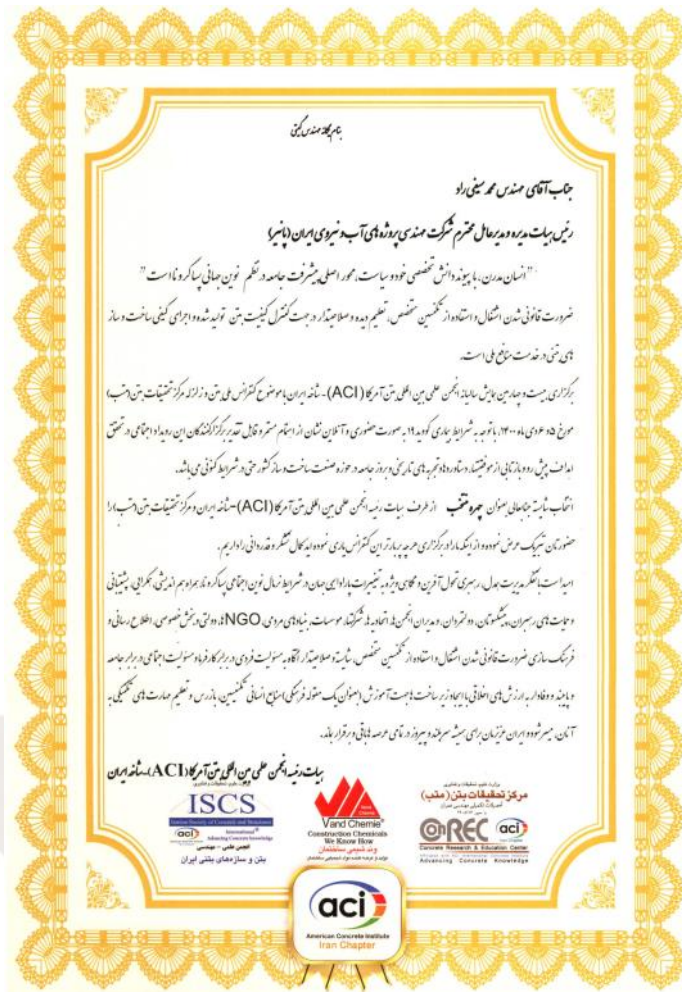 بنام یگانه مهندس گیتی
جناب آقای مهندس محمد سیفی راد
رئیس هیات مدیره و مدیرعامل محترم شرکت مهندسی پروژه های آب و نیروی ایران (پانیر)
"انسان مدرن، با پیوند دانش تخصصی خود و سیاست، محور اصلی پیشرفت جامعه در نظم نوین جهانی پساکروناست"
ضرورت قانونی شدن اشتغال و استفاده از تکنسین متخصص، تعلیم دیده و صلاحیتدار در جهت کنترل کیفیت بتن تولید شده و اجرای کیفی ساخت و ساز
های بتنی در خدمت منافع ملی است.
برگزاری بیست و چهارمین همایش سالیانه انجمن علمی بین المللی بتن آمریکا (ACI) - شاخه ایران با موضوع کنفرانس ملی بتن و زلزله مرکز تحقیقات بتن (متب)
مورخ ۱۵ دی ماه ۱۴۰۰، با توجه به شرایط بیماری کووید ۱۹ به صورت حضوری و آنلاین نشان از اهتمام مستمر و قابل تقدیر برگزارکنندگان این رویداد اجتماعی در تحقق
اهداف پیش رو و بازتابی از موفقیتها، دستاوردها و تجربه های تاریخی و بروز جامعه در حوزه صنعت ساخت و ساز کشور حتی در شرایط کنونی می باشد.
انتخاب شایسته جنابعالی بعنوان چهره منتخب از طرف هیات رئیسه انجمن علمی بین المللی بتن آمریکا (ACI) - شاخه ایران و مرکز تحقیقات بتن (متب) را
حضورتان تبریک عرض نموده و از اینکه ما را در برگزاری هر چه پربارتر این کنفرانس یاری نموده اید کمال تشکر و قدردانی را داریم.
امید است با تفکر مدیریت بدل، رهبری تحول آفرین و نگاهی ویژه به تغییرات پارادایمی جهان در شرایط نرمال نوین اجتماعی پساکرونا، همراه هم اندیشی، همگرایی، پشتیبانی
و حمایت های رهبران، پیشکسوتان، دولتمردان، مدیران انجمن ها، اتحادیه ها، شرکتها، موسسات، بنیادهای مردمی، NGOها، دولتی و بخش خصوصی، اطلاع رسانی و
فرهنگ سازی ضرورت قانونی شدن اشتغال و استفاده از تکنسین متخصص، شایسته و صلاحیتدار، آگاه به مسئولیت فردی در برابر کارفرما و مسئولیت اجتماعی در برابر جامعه
و پایبند و وفادار به ارزش های اخلاقی با ایجاد زیرساخت ها جهت آموزش (بعنوان یک مقوله فرهنگی) منابع انسانی تکنیسین، بازرس و تعلیم مهارت های تکنیکی به
آنان، میسر شود و ایران عزیزمان برای همیشه سربلند و پیروز در تمامی عرصه ها باقی و برقرار بماند.
هیات رئیسه انجمن علمی بین المللی بتن آمریکا (ACI) - شاخه ایران
وزارت علوم، تحقیقات و فناوری
ISCS
Iranian Society of Concrete and Structures
aci International
Advancing Concrete knowledge
انجمن علمی - مهندسی
بتن و سازه‌های بتنی ایران
Vand Chemie
Vand Chemie®
Construction Chemicals
We Know How
وند شیمی ساختمان
تولید و عرضه کننده مواد شیمیایی ساختمان
وزارت علوم، تحقیقات و فناوری
مرکز تحقیقات بتن (متب)
ConREC aci
Concrete Research & Education Center
Advancing Concrete Knowledge
aci
American Concrete Institute
Iran Chapter